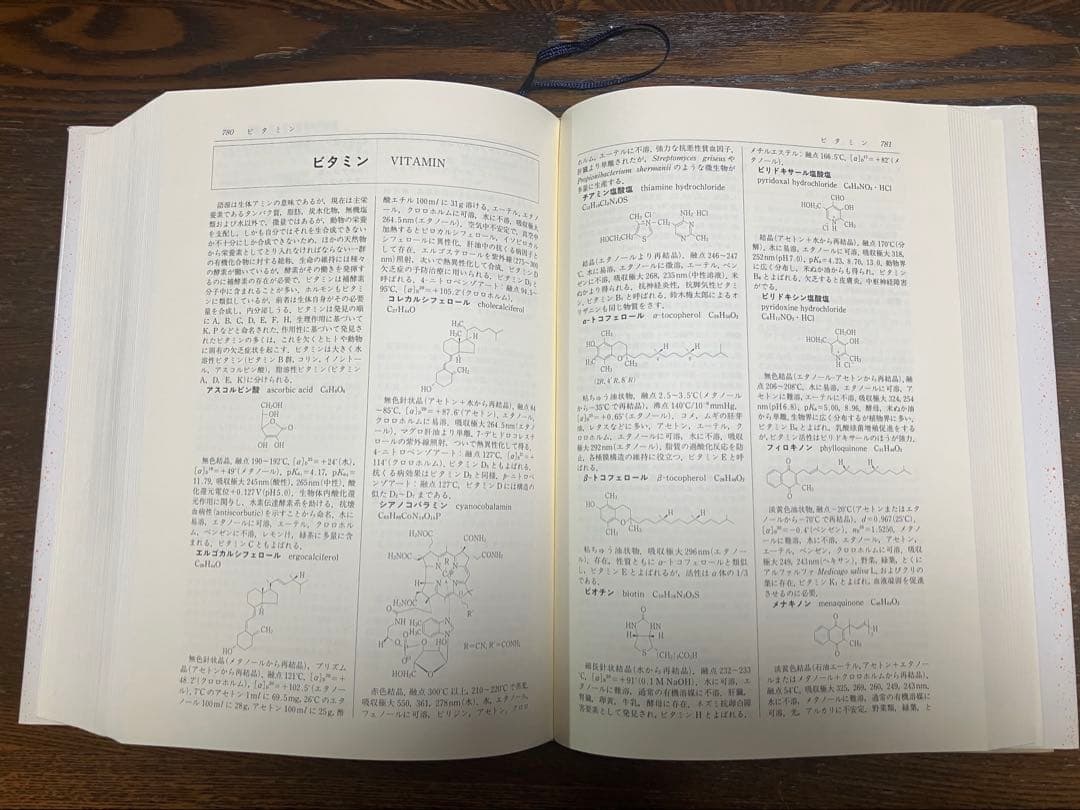 780 ビタミン
ビタミン VITAMIN
語源は生体アミンの意味であるが，現在は主栄
養素であるタンパク質，脂肪，炭水化物，無機塩
類および水以外で，微量ではあるが，動物の栄養
を支配し，しかも自分ではそれを生合成できない
か不十分にしか合成できないため，ほかの天然物
から栄養素としてとり入れなければならない一群
の有機化合物に対する総称．生命の維持には種々
の酵素が働いているが，酵素がその働きを発揮す
るのに補酵素の存在が必要で，ビタミンは補酵素
分子中に含まれることが多い．ホルモンもビタミ
ンに類似しているが，前者は生体自身がその必要
量を合成し，内分泌しうる．ビタミンは発見の順
に A, B, C, D, E, F, H, 生理作用に基づいて
K, P などと命名された．作用性に基づいて発見さ
れたビタミンの多くは，これを欠くとヒトや動物
に固有の欠乏症状を起こす．ビタミンは大きく水
溶性ビタミン(ビタミンB群，コリン，イノシトー
ル，アスコルビン酸)，脂溶性ビタミン(ビタミン
A, D, E, K)に分けられる．
アスコルビン酸 ascorbic acid C₆H₈O₆
CH₂OH
無色結晶，融点190～192℃，
11.79，吸収極大245nm(酸性)，265nm(中性)，酸
化還元電位+0.127V(pH5.0)．生物体内酸化還
元作用に関与し，水素伝達酵素系を助ける．抗壊
血病性(antiscorbutic)を示すことから命名．水に
易溶，エタノールに可溶，エーテル，クロロホル
ム，ベンゼンに不溶．レモン汁，緑茶に多量に含
まれる．ビタミンCともよばれる．
エルゴカルシフェロール ergocalciferol
C₂₈H₄₄O
無色針状晶(メタノールから再結晶)，プリズム
晶(アセトンから再結晶)．融点121℃，
48.2°(クロロホルム)，+102.5°(エタノー
ル)，7℃のアセトン1mlに69.5mg，26℃のエタ
ノール100mlに28g，アセトン100mlに25g，酢
酸エチル100mlに31g溶ける．エーテル，エタノ
ール，クロロホルムに可溶，水に不溶．吸収極大
264.5nm(エタノール)．空気中不安定で，真空中
加熱するとピロカルシフェロール，イソピロカル
シフェロールに異性化．肝油中の抗くる病因子と
して存在．エルゴステロールを紫外線(275～300
nm)照射，次いで熱異性化して合成．ビタミンD
欠乏症の予防治療に用いられる．ビタミンD₂と
呼ばれる．4-ニトロベンゾアート：融点
コレカルシフェロール cholecalciferol
C₂₇H₄₄O
無色針状晶(アセトン+水から再結晶)，融点84
～85℃，+87.6°(アセトン)．エタノール，
クロロホルムに易溶，吸収極大264.5nm(エタノ
ール)．マグロ肝油より単離，7-デヒドロコレステ
ロールの紫外線照射，ついで熱異性化して得る．
4-ニトロベンゾアート：融点127℃，
114°(クロロホルム)．ビタミンD₃ともよばれる．
抗くる病効果はビタミンD₂と同様．
シアノコバラミン cyanocobalamin
C₆₃H₈₈CoN₁₄O₁₄P
R=CN, R'=CONH₂
赤色結晶，融点300℃以上，210～220℃で炭変．
吸収極大550, 361, 278nm(水)．
ビタミン 781
ホルム，エーテルに不溶．強力な抗悪性貧血因子．
肝臓より単離されたが，Streptomyces griseusや
Propionibacterium shermaniiのような微生物が
多量に生産する．
チアミン塩酸塩 thiamine hydrochloride
結晶(エタノールより再結晶)．融点246～247
℃．水に易溶，エタノールに微溶，エーテル，ベン
ゼンに不溶，吸収極大268, 235nm(中性溶液)．米
ぬかより得られる．抗神経炎性，抗脚気性ビタミ
ン．ビタミンB₁と呼ばれる．鈴木梅太郎によるオ
リザニンも同じ物質をさす．
α-トコフェロール α-tocopherol C₂₉H₅₀O₂
(2R, 4'R, 8'R)
粘ちゅう油状物，融点2.5～3.5℃(メタノール
から－35℃で再結晶)，沸点
+0.65°(エタノール)．コメ，ムギの胚芽
油，レタスなどに多い．アセトン，エーテル，ク
ロロホルム，エタノールに可溶，水に不溶．吸収極
大292nm(エタノール)．脂質の過酸化反応を防
止．各種膜構造の維持に役立つ．ビタミンEと呼
ばれる．
β-トコフェロール β-tocopherol C₂₈H₄₈O₂
粘ちゅう油状物，吸収極大296nm(エタノー
ル)．存在，性質ともにα-トコフェロールと類似
し，ビタミンEとよばれるが，活性はα体の1/3
である．
ビオチン biotin C₁₀H₁₆N₂O₃S
細長針状結晶(水から再結晶)．融点232～233
℃，+91°(0.1M NaOH)．水に可溶，エタ
ノールに難溶，通常の有機溶媒に不溶．肝臓，
腎臓，卵黄，牛乳，酵母に存在．ネズミ抗卵白障
害要素として発見され，ビタミンHとよばれる．
メチルエステル：融点166.5℃，+82°(メ
タノール)．
ピリドキサール塩酸塩
pyridoxal hydrochloride C₈H₉NO₃・HCl
結晶(アセトン+水から再結晶)，融点170℃(分
解)．水に易溶，エタノールに可溶，吸収極大318,
252nm(pH7.0)，pKₐ=4.23, 8.70, 13.0，動物界
に広く分布し，米ぬか油からも得られ，ビタミン
B₆とよばれる．欠乏すると皮膚炎，中枢神経障害
がでる．
ピリドキシン塩酸塩
pyridoxine hydrochloride
C₈H₁₁NO₃・HCl
無色結晶(エタノール-アセトンから再結晶)．融
点206～208℃，水に易溶，エタノールに可溶，ア
セトンに難溶，エーテルに不溶．吸収極大324, 254
nm(pH6.8)，pKₐ=5.00, 8.96，酵母，米ぬか油
から単離，生物界に広く分布するが植物界に多い．
ビタミンB₆とよばれ，乳酸球菌増殖促進をする
が，ビタミン活性はピリドキサールのほうが強力．
フィロキノン phylloquinone C₃₁H₄₆O₂
淡黄色油状物，融点－20℃(アセトンまたはエタ
ノールから－70℃で再結晶)，d=0.967(25℃)，
－0.4°(ベンゼン)，1.5250，メタノ
ールに難溶，水に不溶，エタノール，アセトン，
エーテル，ベンゼン，クロロホルムに可溶．吸収
極大249, 243nm(ヘキサン)．野菜，緑葉，とくに
アルファルファ Medicago sativa L. およびクリの
葉に存在．ビタミンK₁とよばれ，血液凝固を促進
させるのに必要．
メナキノン menaquinone
淡黄色結晶(石油エーテル，アセトン+エタノー
ルまたはメタノール+クロロホルムから再結晶)，
融点54℃，吸収極大325, 269, 260, 249, 243nm，
水に不溶，メタノールに難溶，通常の有機溶媒に
可溶，光，アルカリに不安定．野菜類，緑葉，と